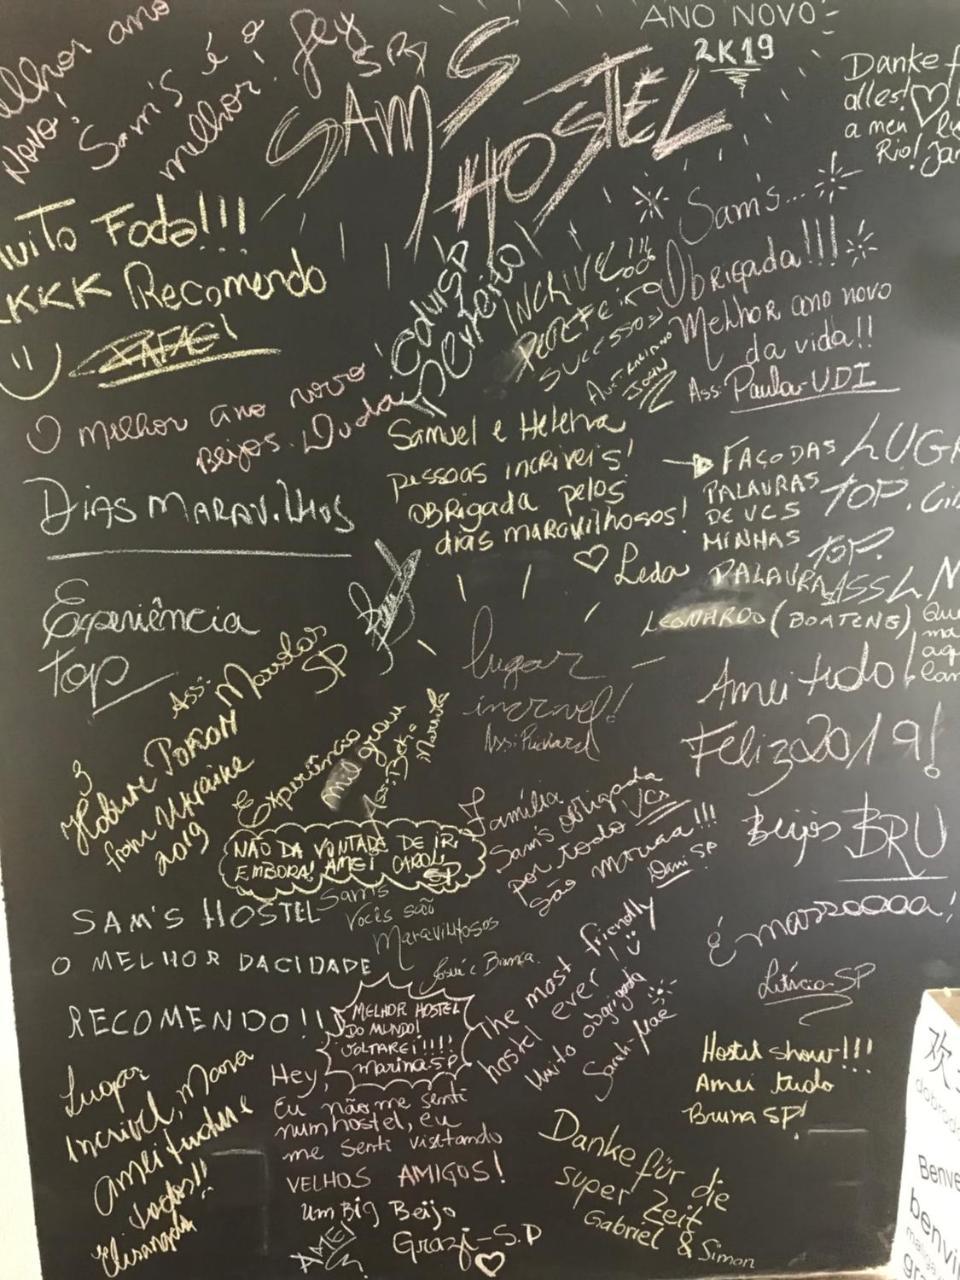 melhor ano
Novo!
Sam's é o
melhor!
SAM'S
HOSTEL
ANO NOVO
2K19
Danke f
alles!
a meu
Rio! Jan
Muito Foda!!!
KKKK Recomendo
RAFAEL
O melhor ano novo
Beijos. Duda
INCRIVEL!!!
PERFEITO
SUCESSO!
Sam's...
Obrigada!!!
Melhor ano novo
da vida!!
Ass: Paula-UDI
DIAS MARAVILHOS
Samuel e Helena
pessoas incriveis!
obrigada pelos
dias maravilhosos!
♡ Leda
FAÇO DAS
PALAVRAS
DE VCS
MINHAS
PALAVRA
LEONARDO (BOATENG)
LUGA
TOP.
TOP.
Experiência
top
Ass: Marcelos
SP
from Ukraine
2019
lugar
incrivel!
Ass: Richard
Amei tudo!
Feliz 2019!
Beijos BRU
Família
Sam's obrigada
por tudo Vcs
são maraa!!!
Dani SP
NÃO DA VONTADE DE IR
EMBORA! AMEI CAROL
SP
SAM'S HOSTEL
O MELHOR DA CIDADE
RECOMENDO!!
Sam's
Vocês são
Maravilhosos
Josué e Bianca.
É marzooooa!
Letícia-SP
MELHOR HOSTEL
DO MUNDO!
VOLTAREI!!!!
marina SP
The most friendly
hostel ever!
Muito obrigada
Sarah-Mae
Hostel show!!!
Amei tudo
Bruna SP!
Lugar
Incrivel, Mara
amei tudo e
todos!!
Elisangela
Hey,
Eu não me senti
num hostel, eu
me senti visitando
VELHOS AMIGOS!
Um Big Beijo
AMEI
Grazi-S.P
♡
Danke für die
super Zeit
Gabriel & Simon
欢
dobrodo
Benve
benvi